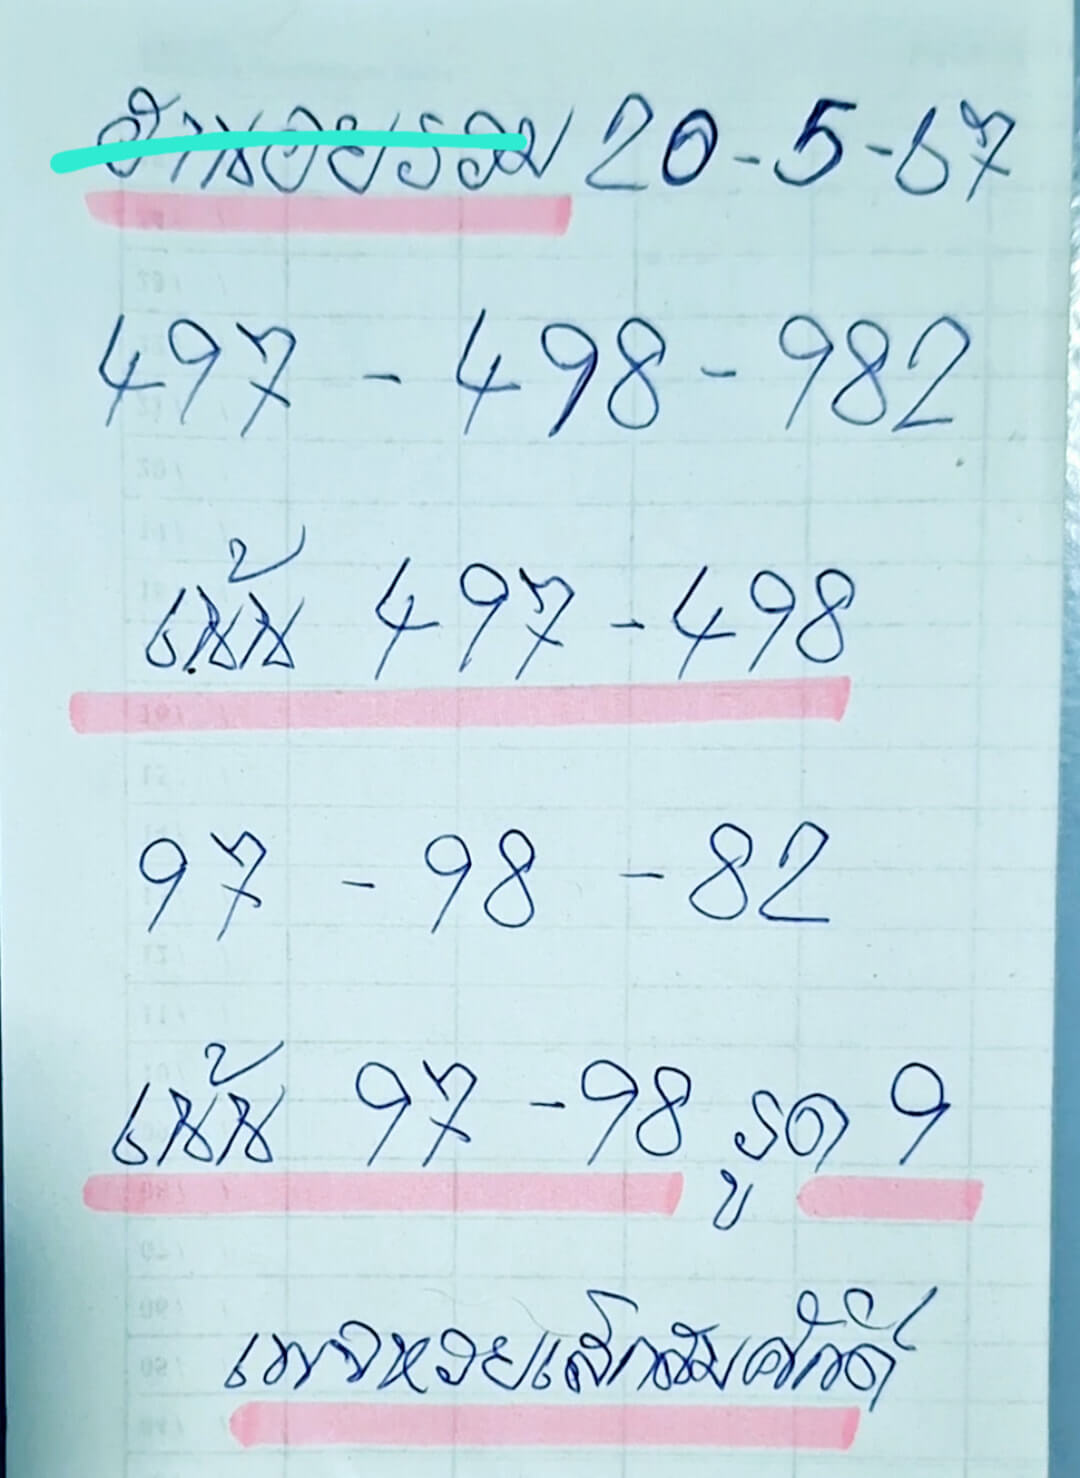 ฮานอยรวม 20-5-67
497 - 498 - 982
เน้น 497 - 498
97 - 98 - 82
เน้น 97 - 98 รูด 9
เพจหวยเล็กสมศักดิ์